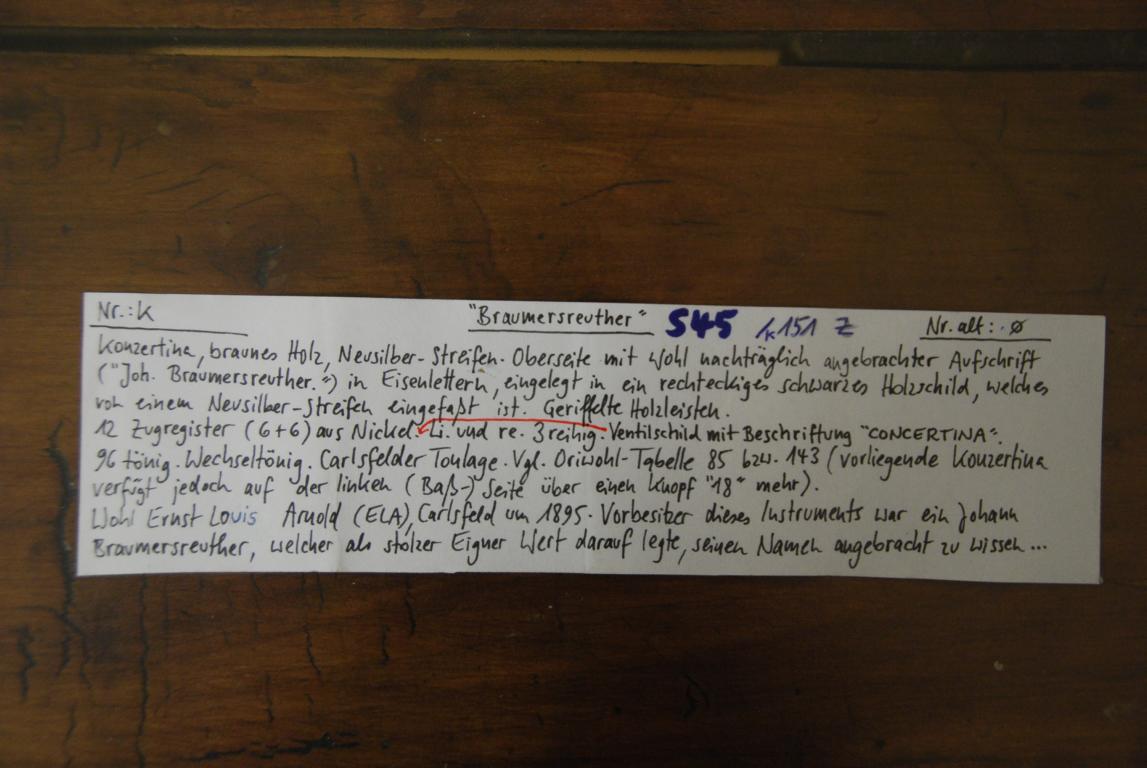 Nr.: K "Braumersreuther" S45 1k151 Z Nr. alt: Ø
Konzertina, braunes Holz, Neusilber-Streifen. Oberseite mit wohl nachträglich angebrachter Aufschrift
("Joh. Braumersreuther.") in Eisenlettern, eingelegt in ein rechteckiges schwarzes Holzschild, welches
von einem Neusilber-Streifen eingefaßt ist. Geriffelte Holzleisten.
12 Zugregister (6+6) aus Nickel. Li. und re. 3reihig. Ventilschild mit Beschriftung "CONCERTINA".
96 tönig. Wechseltönig. Carlsfelder Tonlage. Vgl. Oriwohl-Tabelle 85 bzw. 143 (vorliegende Konzertina
verfügt jedoch auf der linken (Baß-) Seite über einen Knopf "18" mehr).
Wohl Ernst Louis Arnold (ELA), Carlsfeld um 1895. Vorbesitzer dieses Instruments war ein Johann
Braumersreuther, welcher als stolzer Eigner Wert darauf legte, seinen Namen angebracht zu wissen...